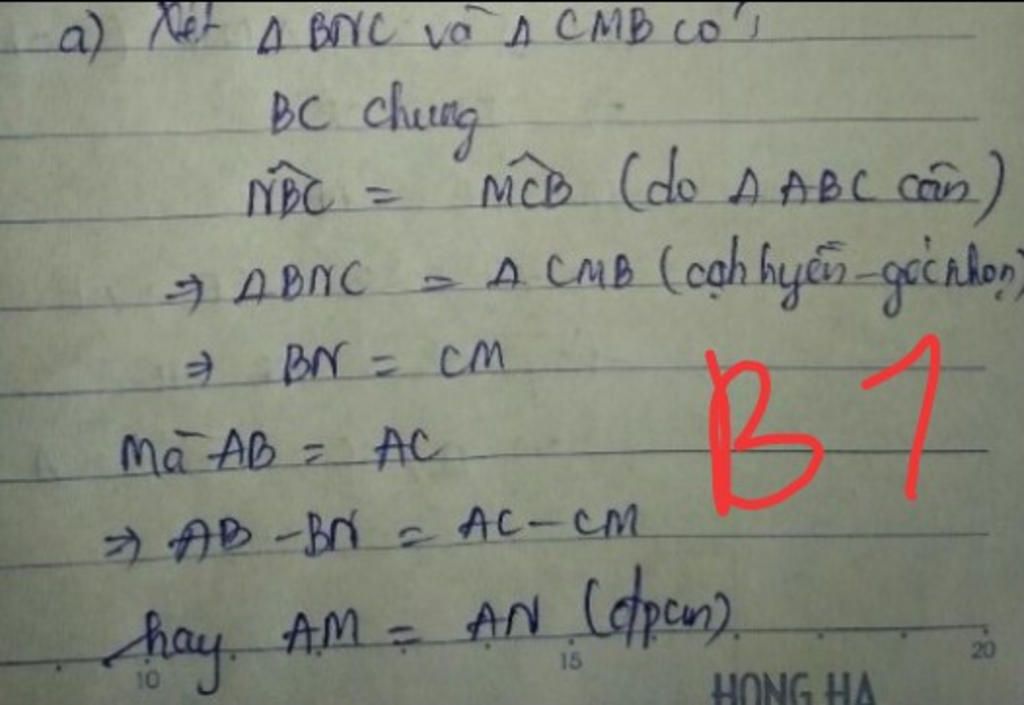 a) Xét Δ BNC và Δ CMB có:
BC chung
N̂BC = M̂CB (do Δ ABC cân)
⇒ ΔBNC = Δ CMB (cạnh huyền - góc nhọn)
⇒ BN = CM
Mà AB = AC
⇒ AB - BN = AC - CM
hay AM = AN (đpcm)
B1
10 15 20
HONG HA